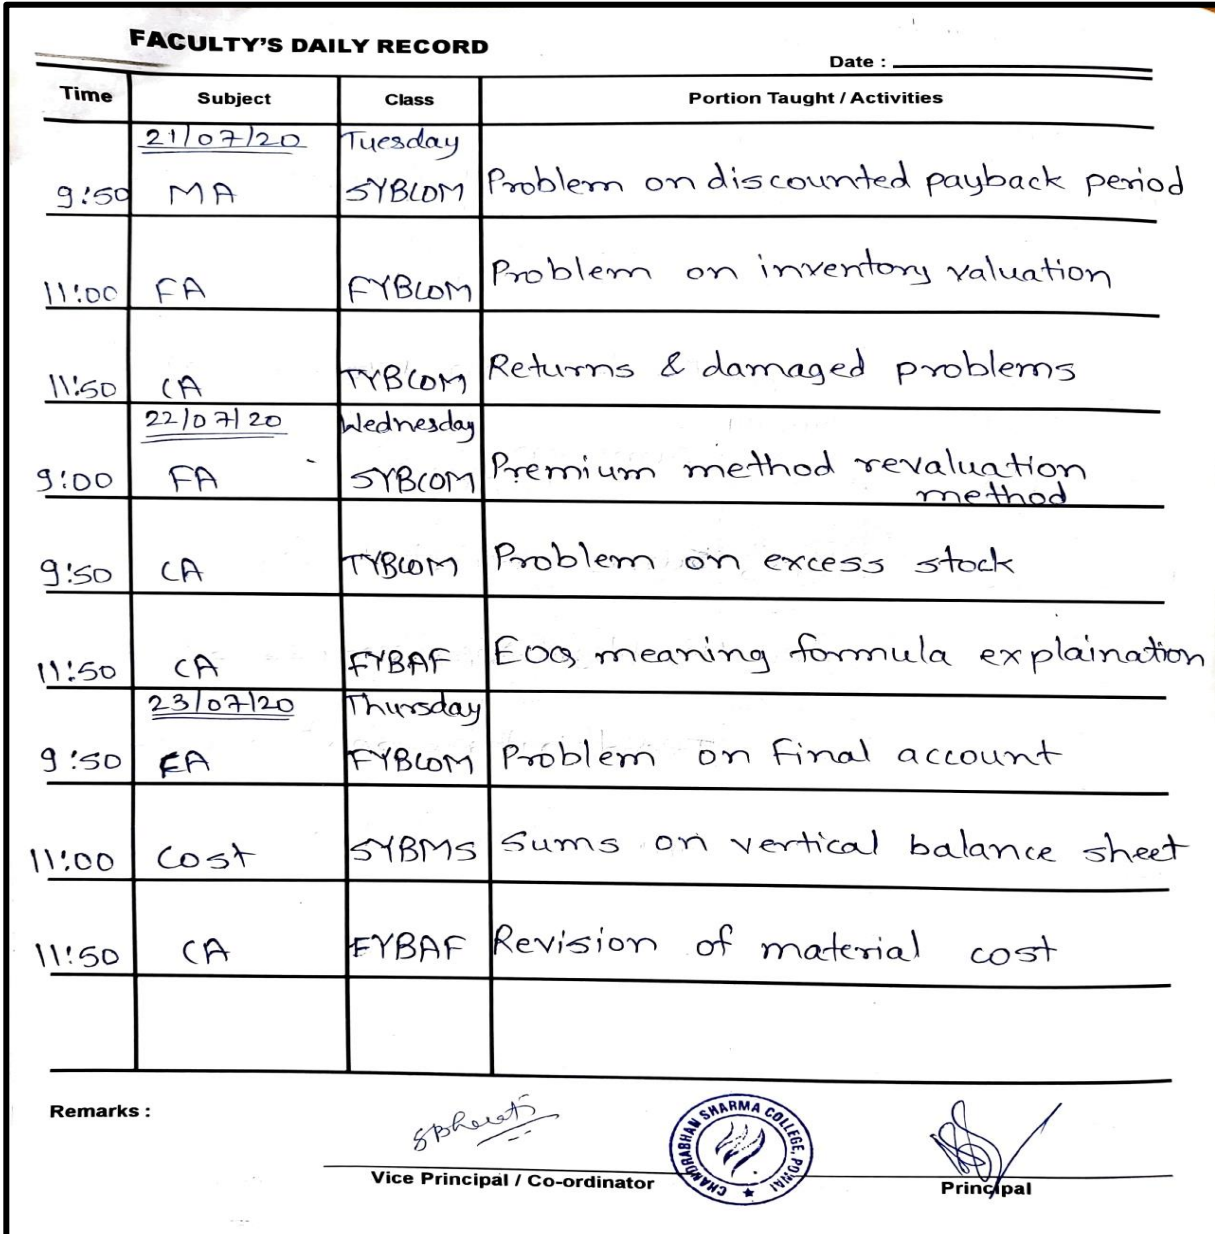 FACULTY'S DAILY RECORD
Date :
Time Subject Class Portion Taught / Activities
21/07/20 Tuesday
9:50 MA SYBCOM Problem on discounted payback period
11:00 FA FYBCOM Problem on inventory valuation
11:50 CA TYBCOM Returns & damaged problems
22/07/20 Wednesday
9:00 FA SYBCOM Premium method revaluation
method
9:50 CA TYBCOM Problem on excess stock
11:50 CA FYBAF EOQ meaning formula explaination
23/07/20 Thursday
9:50 FA FYBCOM Problem on Final account
11:00 Cost SYBMS Sums on vertical balance sheet
11:50 CA FYBAF Revision of material cost
Remarks :
CHANDRABHAN SHARMA COLLEGE, POWAI
Vice Principal / Co-ordinator
Principal